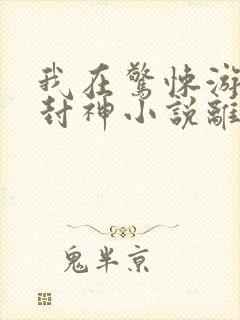 我在驚悚游
封神小說離
鬼半京